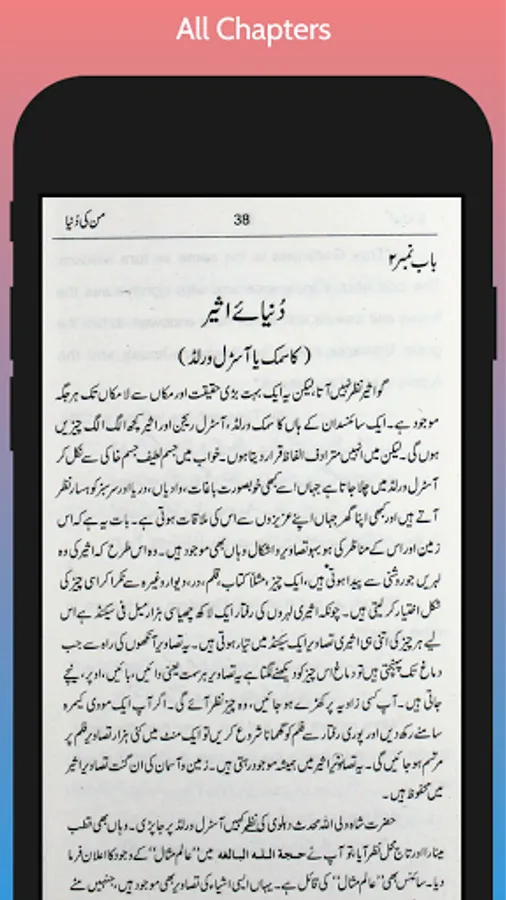 All Chapters
من کی دُنیا 38
باب نمبر ۲
دُنیائے اثیر
(کاسمک یا آسٹرل ورلڈ)
گو اثیر نظر نہیں آتا، لیکن یہ ایک بہت بڑی حقیقت اور مکاں سے لامکاں تک ہر جگہ
موجود ہے۔ ایک سائنسدان کے ہاں کاسمک ورلڈ، آسٹرل ریجن اور اثیر کچھ الگ الگ چیزیں
ہوں گی۔ لیکن میں انہیں مترادف الفاظ قرار دیتا ہوں۔ خواب میں جسمِ لطیف جسمِ خاکی سے نکل کر
آسٹرل ورلڈ میں چلا جاتا ہے جہاں اسے کبھی خوبصورت باغات، وادیاں، دریا اور سرسبز کوہسار نظر
آتے ہیں اور کبھی اپنا گھر جہاں اپنے عزیزوں سے اس کی ملاقات ہوتی ہے۔ بات یہ ہے کہ اس
زمین اور اس کے مناظر کی ہو بہو تصاویر و اشکال وہاں بھی موجود ہیں۔ وہ اس طرح کہ اثیر کی وہ
لہریں جو روشنی سے پیدا ہوتی ہیں، ایک چیز، مثلاً کتاب، قلم، در، دیوار وغیرہ سے ٹکرا کر اسی چیز کی
شکل اختیار کر لیتی ہیں۔ چونکہ اثیری لہروں کی رفتار ایک لاکھ چھیاسی ہزار میل فی سیکنڈ ہے اس
لیے ہر چیز کی اتنی ہی اثیری تصاویر ایک سیکنڈ میں تیار ہوتی ہیں۔ یہ تصاویر آنکھوں کی راہ سے جب
دماغ تک پہنچتی ہیں تو دماغ اس چیز کو دیکھنے لگتا ہے یہ تصاویر ہر سمت یعنی دائیں، بائیں، اوپر، نیچے
جاتی ہیں۔ آپ کسی زاویہ پر کھڑے ہو جائیں، وہ چیز نظر آئے گی۔ اگر آپ ایک مووی کیمرہ
سامنے رکھ دیں اور پوری رفتار سے فلم کو گھمانا شروع کریں تو ایک منٹ میں کئی ہزار تصاویر فلم پر
مرتسم ہو جائیں گی۔ یہ تصاویر اثیر میں ہمیشہ موجود رہتی ہیں۔ زمین و آسمان کی ان گنت تصاویر اثیر
میں محفوظ ہیں۔
حضرت شاہ ولی اللہ محدث دہلوی کی نظر کہیں آسٹرل ورلڈ پر جا پڑی۔ وہاں بھی قطب
مینار اور تاج محل نظر آیا، تو آپ نے حجة اللہ البالغہ میں "عالم مثال" کے وجود کا اعلان فرما
دیا۔ سائنس بھی "عالم مثال" کی قائل ہے۔ یہاں ایسی اشیاء کی تصاویر بھی موجود ہیں، جنہیں مٹے